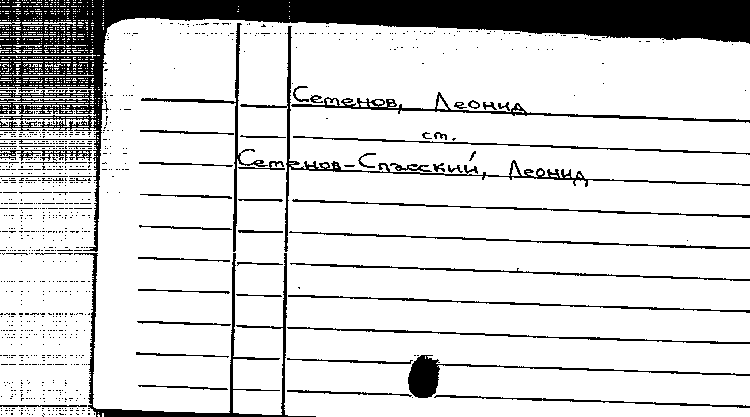 Семенов, Леонид
ст.
Семенов-Спасский, Леонид